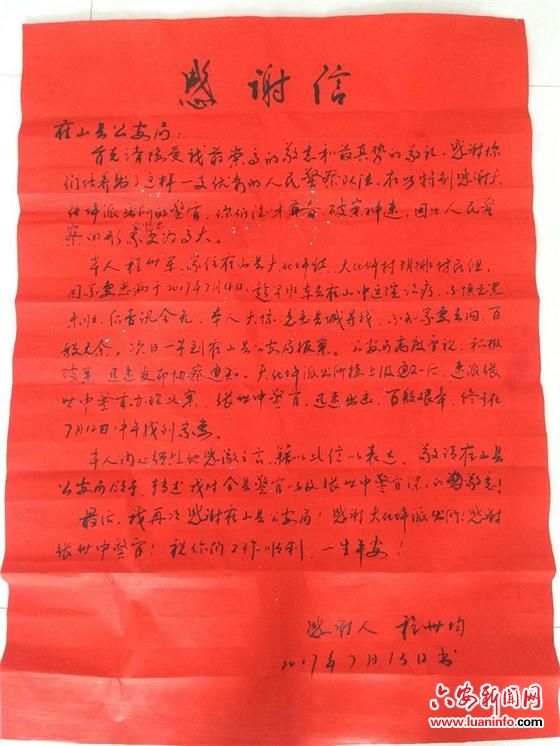 感谢信
霍山县公安局：
首先请接受我最崇高的敬意和最真挚的敬礼，感谢你
们培养出了这样一支优秀的人民警察队伍，在此特别感谢大
化坪派出所的警官，你们秉公 破案神速，因此人民警
察的形象更为高大。
本人程世军，家住霍山县大化坪镇，大化坪村 村民组，
因家妻患病于2017年7月4日，趁早班车去霍山中医院治疗，不慎走累
未归，后音讯全无，本人大惊急至县城寻找，不知家妻去向，百
般无奈，次日一早到霍山县公安局报案。公安局高度重视，积极
破案，迅速发布协察通知。大化坪派出所接上级通知后，速派张
世中警官办理此案，张世中警官，迅速出击，百般艰辛，终于在
7月12日中午找到家妻。
本人内心强烈地感激之言，籍以此信以表达，敬请霍山县
公安局领导，转达我对全县警官以及张世中警官深深的敬意！
最后，我再次感谢霍山县公安局！感谢大化坪派出所！感谢
张世中警官！祝你们工作顺利，一生平安！
感谢人 程世均
2017年7月13日书
六安新闻网
www.luaninfo.com